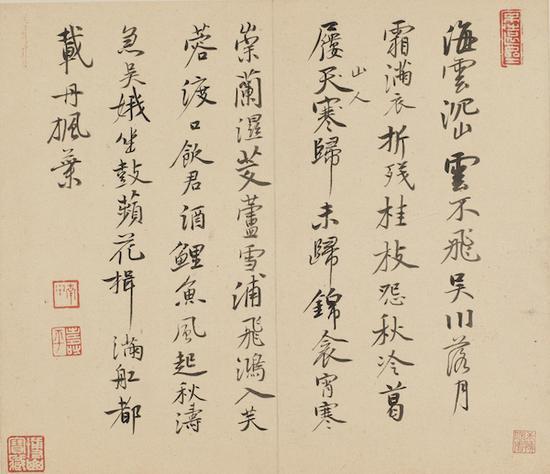 海雲沉〻雲不飛吴川落月
霜滿衣折残桂枝怨秋冷葛
屨天寒歸未歸錦衾宵寒
山人
崇蘭濕芰蘆雪浦飛鴻入芙
蓉渡口飲君酒鯉魚風起秋濤
急吴娥坐鼓蘋花楫滿舡都
載丹楓葉